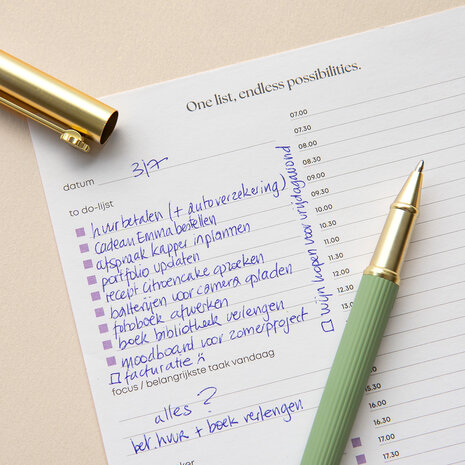 One list, endless possibilities.
datum 3/7
to do-lijst
huur betalen (+ autoverzekering)
cadeau Emma bestellen
afspraak kapper inplannen
portfolio updaten
recept citroencake opzoeken
batterijen voor camera opladen
fotoboek afwerken
boek bibliotheek verlengen
moodboard voor zomerproject
facturatie
focus / belangrijkste taak vandaag
alles?
bet. huur + boek verlengen
07.00
07.30
08.00
08.30
09.00
10.00
10.30
11.00
11.30
12.00
12.30
13.00
wijn kopen voor vrijdagavond
15.30
16.00
16.30
17.00
17.30